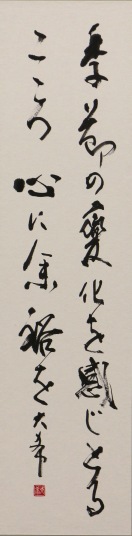 季節の變化を感じとる
こころ 心に余裕を 大希